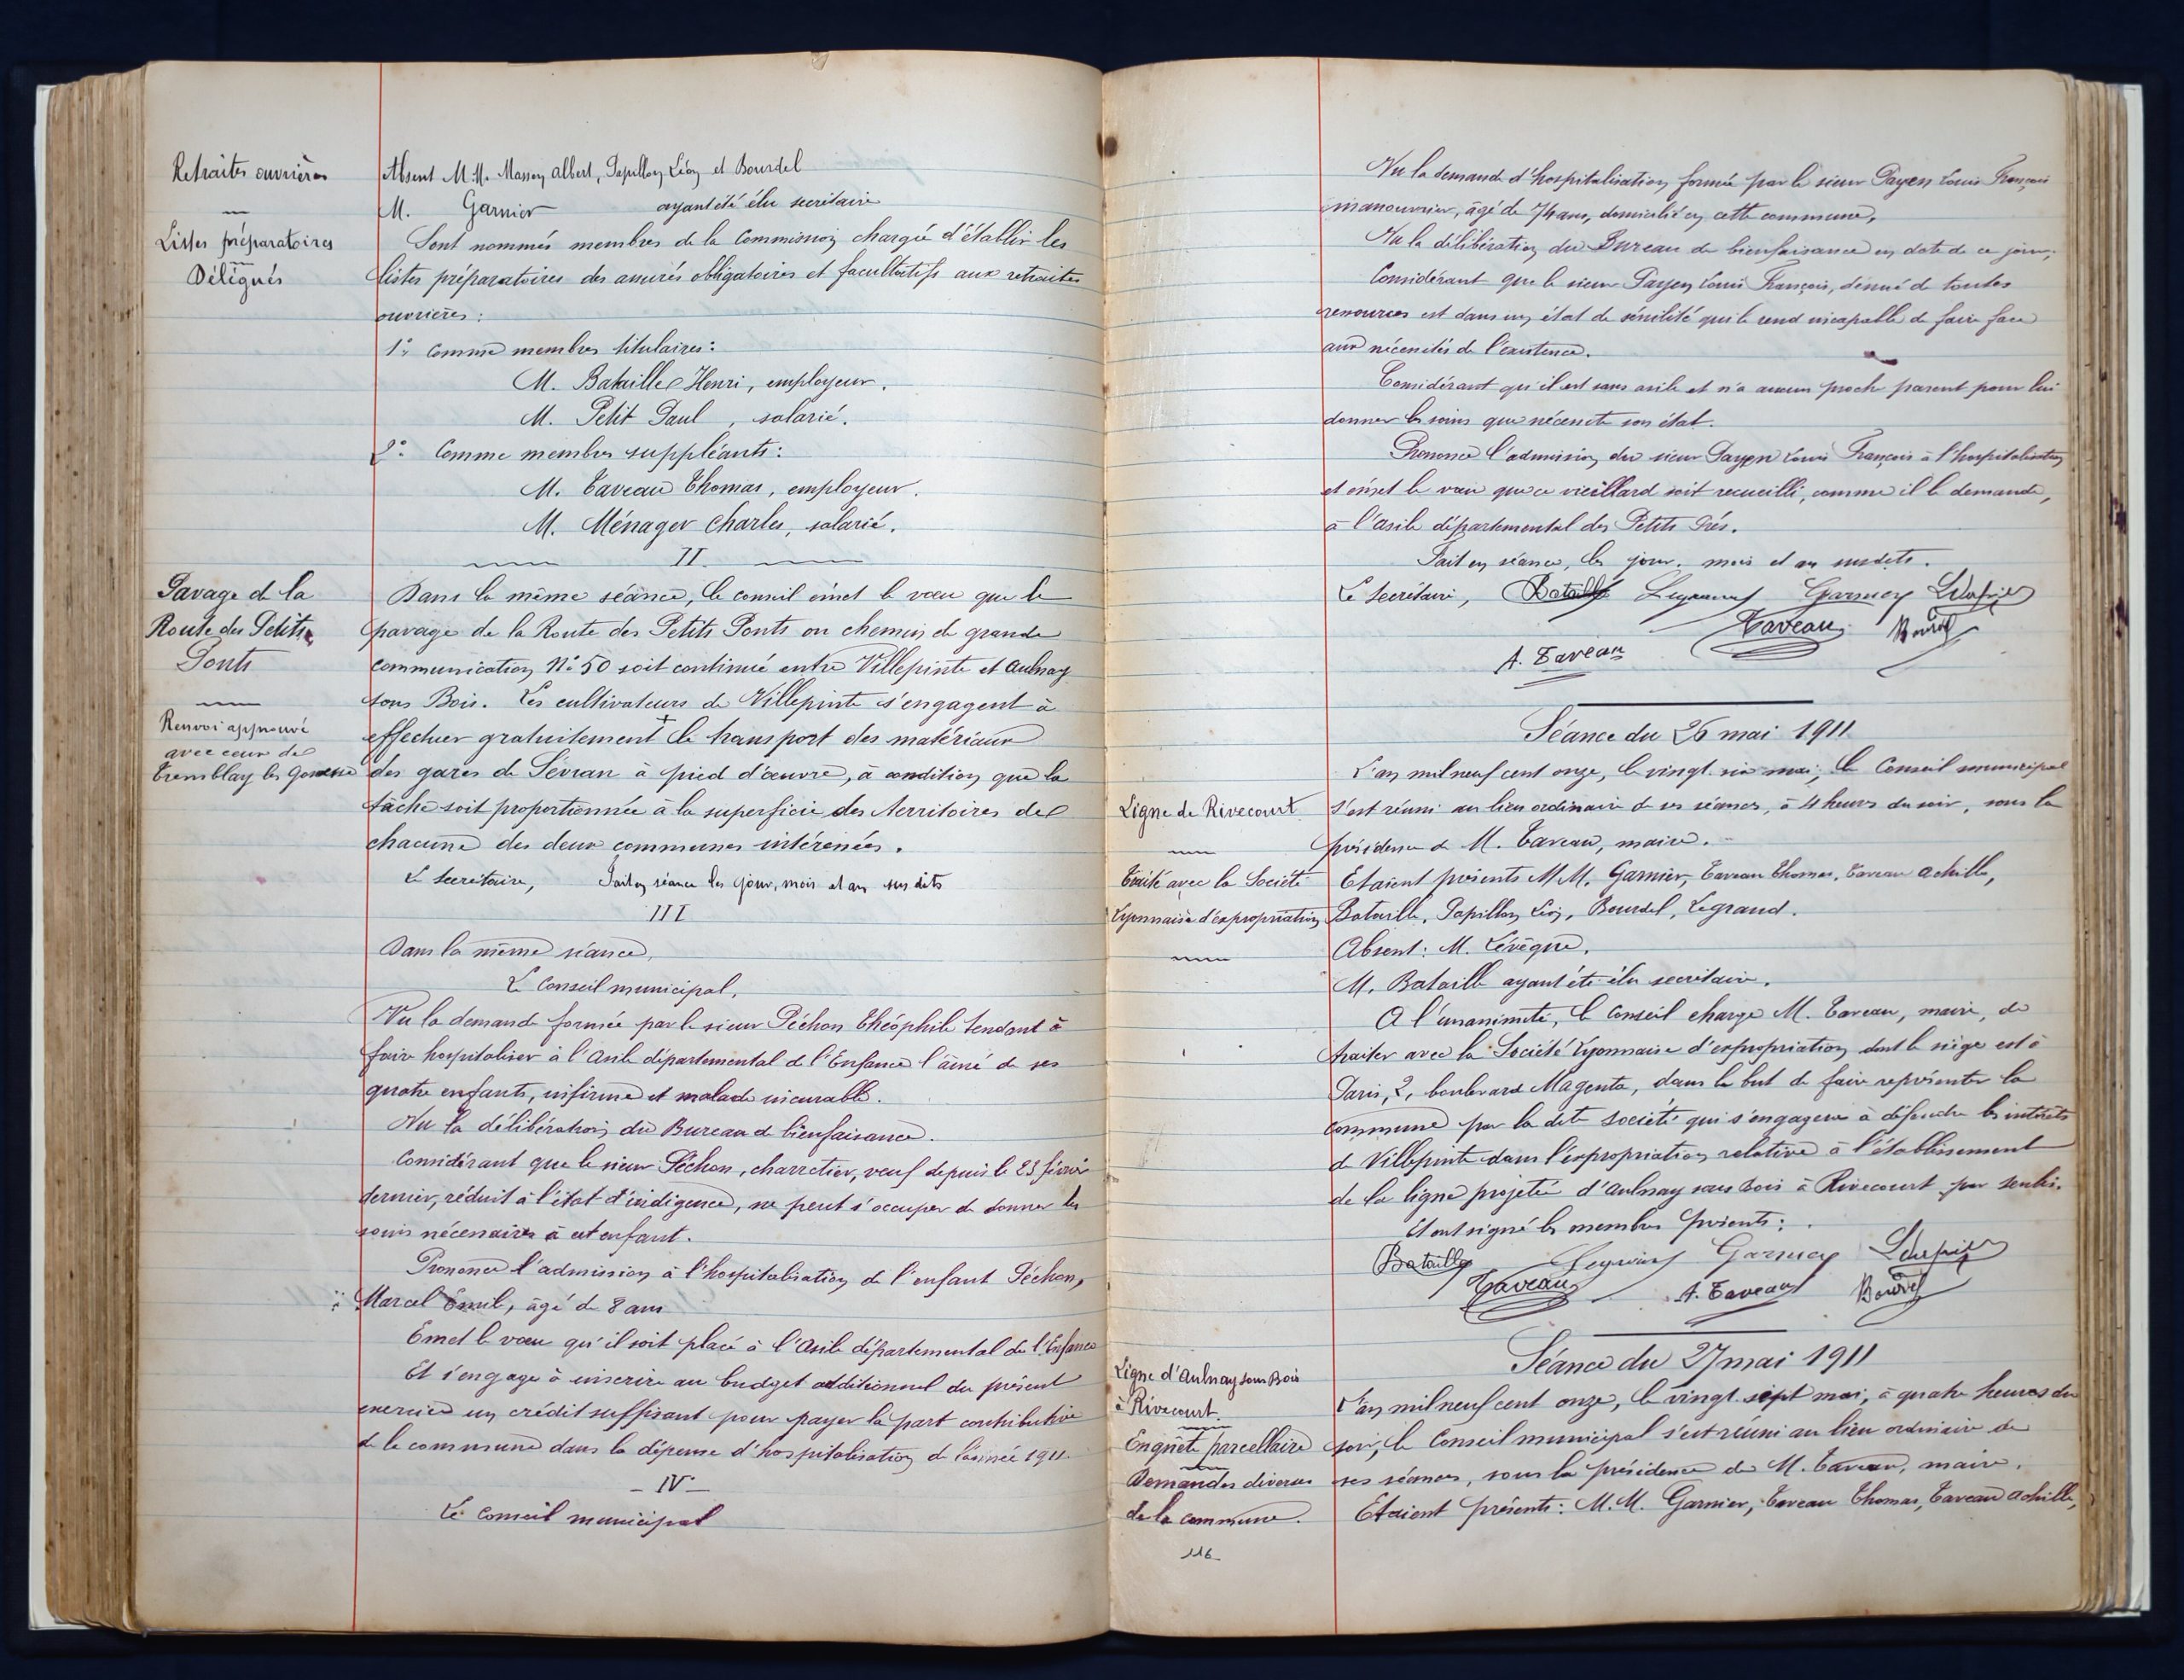 Retraites ouvrières
Listes préparatoires
Délégués
Absent M.M. Masson Albert, Papillon Léon et Bourdel
M. Garnier ayant été élu secrétaire
Sont nommés membres de la Commission chargée d'établir les
listes préparatoires des assurés obligatoires et facultatifs aux retraites
ouvrières :
1° Comme membres titulaires :
M. Bataille Henri, employeur.
M. Petit Paul, salarié.
2° Comme membres suppléants :
M. Taveau Thomas, employeur.
M. Ménager Charles, salarié.
II
Pavage de la
Route des Petits
Ponts
Dans la même séance, le conseil émet le vœu que le
pavage de la Route des Petits Ponts ou chemin de grande
communication N° 50 soit continué entre Villepinte et Aulnay
sous Bois. Les cultivateurs de Villepinte s'engagent à
Renvoi approuvé
avec ceux de
Tremblay les Gonesse
effectuer gratuitement + le transport des matériaux
des gares de Sevran à pied d'œuvre, à condition que la
tâche soit proportionnée à la superficie des territoires de
chacune des deux communes intéressées.
Le Secrétaire, Fait en séance les jour, mois et an susdits
III
Dans la même séance,
Le Conseil municipal,
Vu la demande formée par le sieur Péchon Théophile tendant à
faire hospitaliser à l'Asile départemental de l'Enfance l'aîné de ses
quatre enfants, infirme et malade incurable.
Vu la délibération du Bureau de bienfaisance.
Considérant que le sieur Péchon, charretier, veuf depuis le 23 février
dernier, réduit à l'état d'indigence, ne peut s'occuper de donner les
soins nécessaires à cet enfant.
Prononce l'admission à l'hospitalisation de l'enfant Péchon,
Marcel Emile, âgé de 8 ans
Emet le vœu qu'il soit placé à l'Asile départemental de l'Enfance
Et s'engage à inscrire au budget additionnel du présent
exercice un crédit suffisant pour payer la part contributive
de la commune dans la dépense d'hospitalisation de l'année 1911.
- IV -
Le Conseil municipal
Vu la demande d'hospitalisation formée par le sieur Payen Louis François
manouvrier, âgé de 74 ans, domicilié en cette commune,
Vu la délibération du Bureau de bienfaisance en date de ce jour,
Considérant que le sieur Payen Louis François, dénué de toutes
ressources est dans un état de sénilité qui le rend incapable de faire face
aux nécessités de l'existence.
Considérant qu'il est sans asile et n'a aucun proche parent pour lui
donner les soins que nécessite son état.
Prononce l'admission du sieur Payen Louis François à l'hospitalisation
et émet le vœu que ce vieillard soit recueilli, comme il le demande,
à l'asile départemental des Petits Prés.
Fait en séance, les jour, mois et an susdits.
Le Secrétaire, Bataille Garnier
Taveau Bourdel
A. Taveau
Séance du 26 mai 1911
L'an mil neuf cent onze, le vingt six mai, le Conseil municipal
Ligne de Rivecourt
s'est réuni au lieu ordinaire de ses séances, à 4 heures du soir, sous la
présidence de M. Taveau, maire.
Traité avec la Société
Lyonnaise d'expropriation
Etaient présents MM. Garnier, Taveau Thomas, Taveau Achille,
Bataille, Papillon Léon, Bourdel, Legrand.
Absent : M. Lévêque.
M. Bataille ayant été élu secrétaire.
A l'unanimité, le Conseil charge M. Taveau, maire, de
traiter avec la Société Lyonnaise d'expropriation dont le siège est à
Paris, 2, boulevard Magenta, dans le but de faire représenter la
commune par la dite société qui s'engagera à défendre les intérêts
de Villepinte dans l'expropriation relative à l'établissement
de la ligne projetée d'Aulnay sous Bois à Rivecourt par Senlis.
Et ont signé les membres présents :
Bataille Garnier
Taveau A. Taveau Bourdel
Séance du 27 mai 1911
Ligne d'Aulnay sous Bois
à Rivecourt
Enquête parcellaire
Demandes diverses
de la commune.
L'an mil neuf cent onze, le vingt sept mai, à quatre heures du
soir, le Conseil municipal s'est réuni au lieu ordinaire de
ses séances, sous la présidence de M. Taveau, maire.
Etaient présents : M.M. Garnier, Taveau Thomas, Taveau Achille,
116